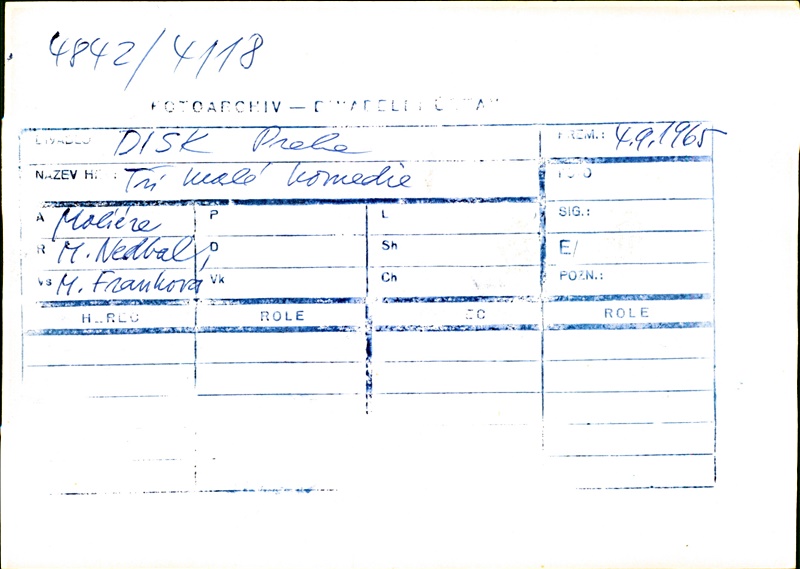 4842/4118
FOTOARCHIV — DIVADELNÍ ÚSTAV
DIVADLO DISK Praha PREM.: 4.9.1965
NÁZEV HRY: Tři malé komedie FOTO
A Moliére P L SIG.:
R M. Nedbal, D Sh E/
Vs M. Franková Vk Ch POZN.:
HEREC ROLE EC ROLE